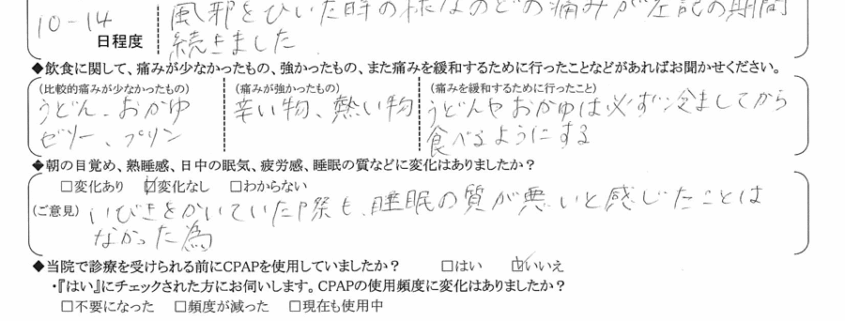 10-14
日程度
風邪をひいた時の様なのどの痛みが左記の期間
続きました
◆飲食に関して、痛みが少なかったもの、強かったもの、また痛みを緩和するために行ったことなどがあればお聞かせください。
(比較的痛みが少なかったもの) (痛みが強かったもの) (痛みを緩和するために行ったこと)
うどん、おかゆ 辛い物、熱い物 うどんやおかゆは必ず冷ましてから
ゼリー、プリン 食べるようにする
◆朝の目覚め、熟睡感、日中の眠気、疲労感、睡眠の質などに変化はありましたか?
□変化あり ☑変化なし □わからない
(ご意見) いびきをかいていた際も、睡眠の質が悪いと感じたことは
なかった為
◆当院で診療を受けられる前にCPAPを使用していましたか? □はい ☑いいえ
・『はい』にチェックされた方にお伺いします。CPAPの使用頻度に変化はありましたか?
□不要になった □頻度が減った □現在も使用中